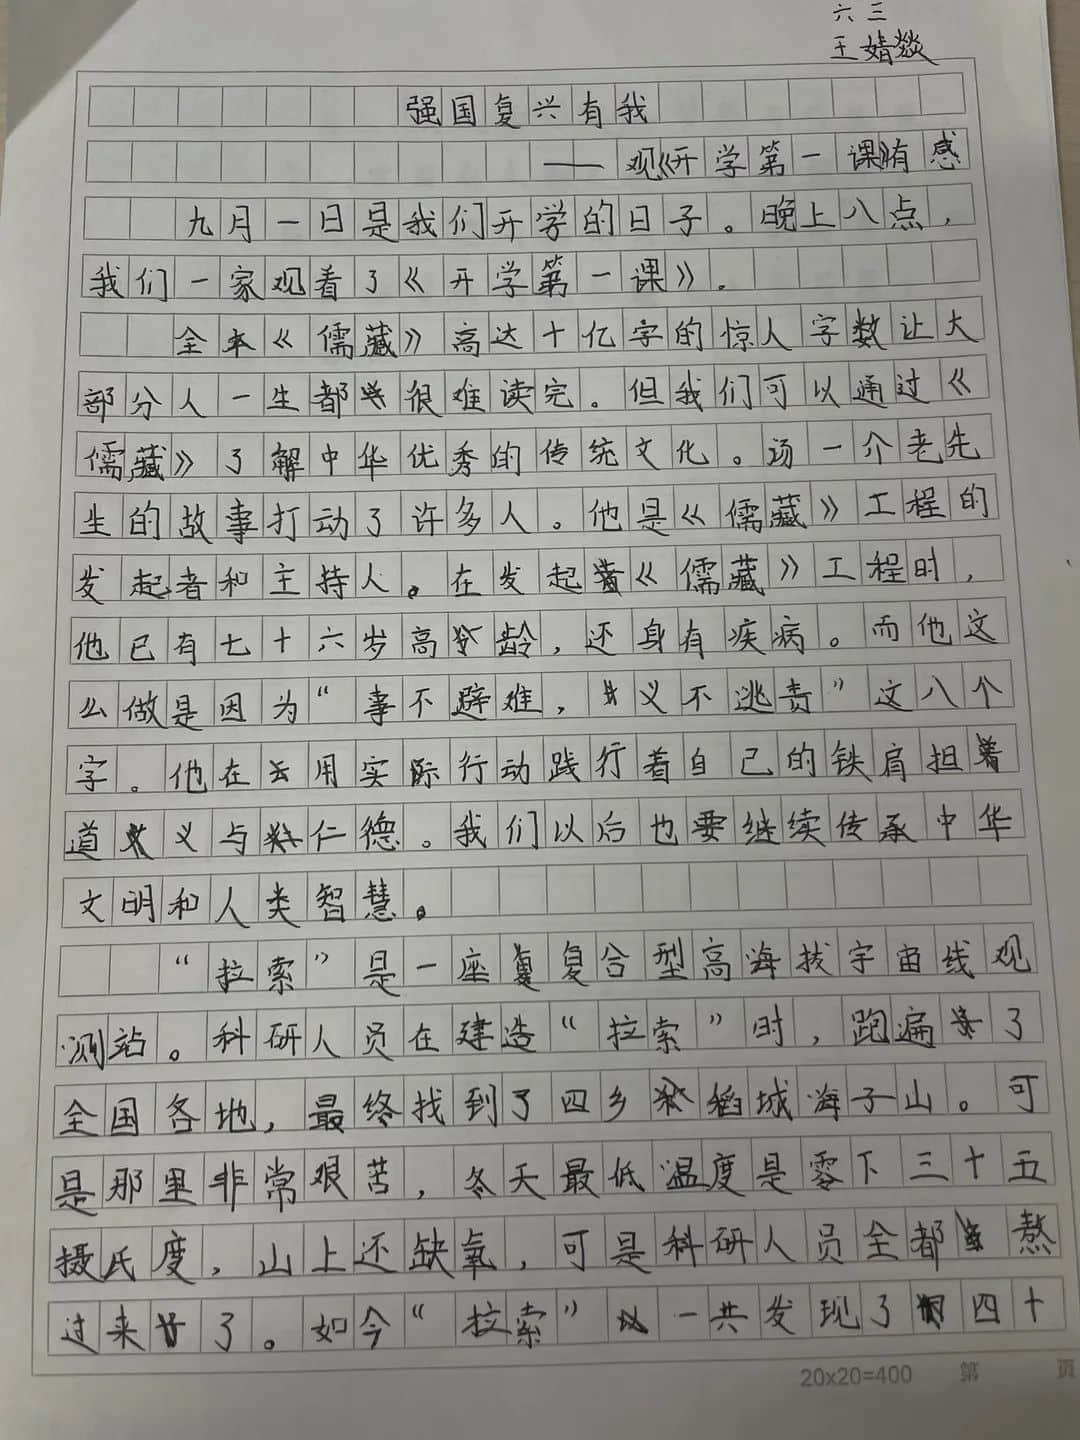 六三
王婧燚
强国复兴有我
——观《开学第一课》有感
九月一日是我们开学的日子。晚上八点，
我们一家观看了《开学第一课》。
全本《儒藏》高达十亿字的惊人字数让大
部分人一生都很难读完。但我们可以通过《
儒藏》了解中华优秀的传统文化。汤一介老先
生的故事打动了许多人。他是《儒藏》工程的
发起者和主持人。在发起《儒藏》工程时，
他已有七十六岁高龄，还身有疾病。而他这
么做是因为“事不避难，义不逃责”这八个
字。他在用实际行动践行着自己的铁肩担着
道义与仁德。我们以后也要继续传承中华
文明和人类智慧。
“拉索”是一座复合型高海拔宇宙线观
测站。科研人员在建造“拉索”时，跑遍了
全国各地，最终找到了四乡稻城海子山。可
是那里非常艰苦，冬天最低温度是零下三十五
摄氏度，山上还缺氧，可是科研人员全都熬
过来了。如今“拉索”一共发现了四十
20x20=400 第 页